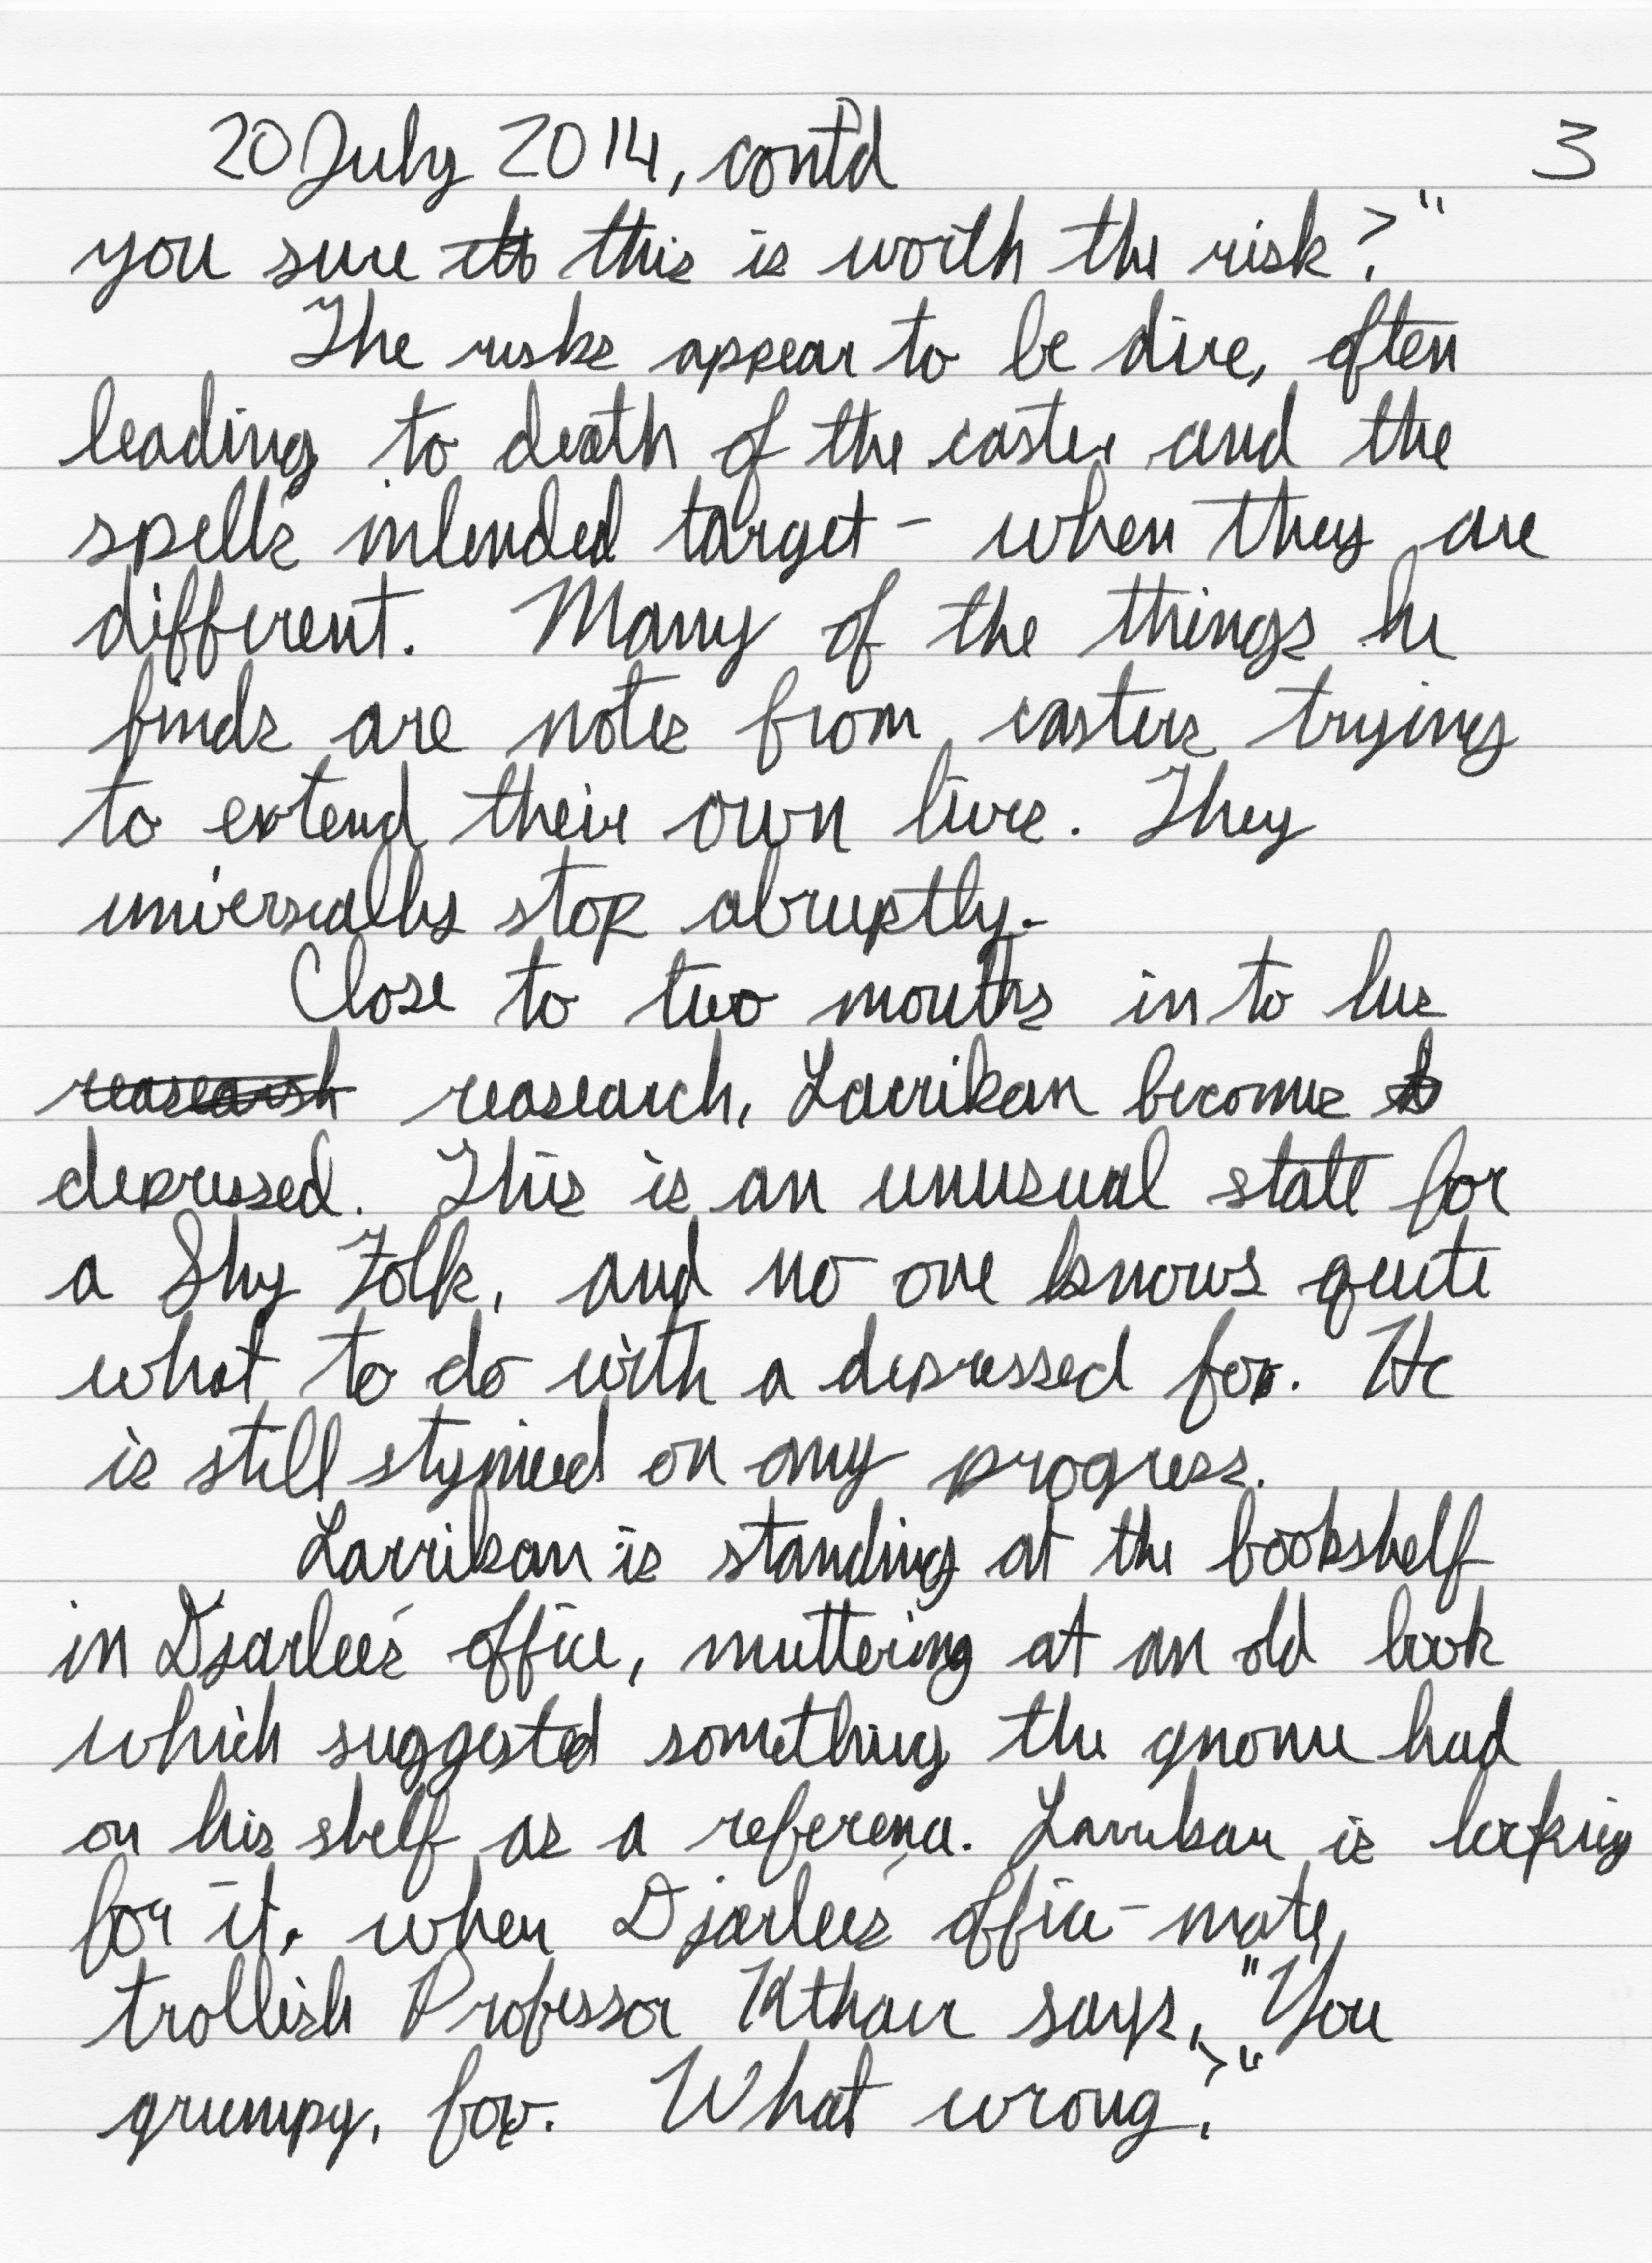 20 July 2014, contd 3
you sure this is worth the risk?"
The risks appear to be dire, often
leading to death of the caster and the
spell's intended target - when they are
different. Many of the things he
finds are notes from casters trying
to extend their own lives. They
universally stop abruptly.
Close to two months in to his
reasearsh reasearch, Larrikan becomes
depressed. This is an unusual state for
a Shy Folk, and no one knows quite
what to do with a depressed fox. He
is still stymied on any progress.
Larrikan is standing at the bookshelf
in Djarlee's office, muttering at an old book
which suggested something the gnome had
on his shelf as a reference. Larrikan is looking
for it, when Djarlee's office-mate,
trollish Professor Kthaur says, "You
grumpy, fox. What wrong?"